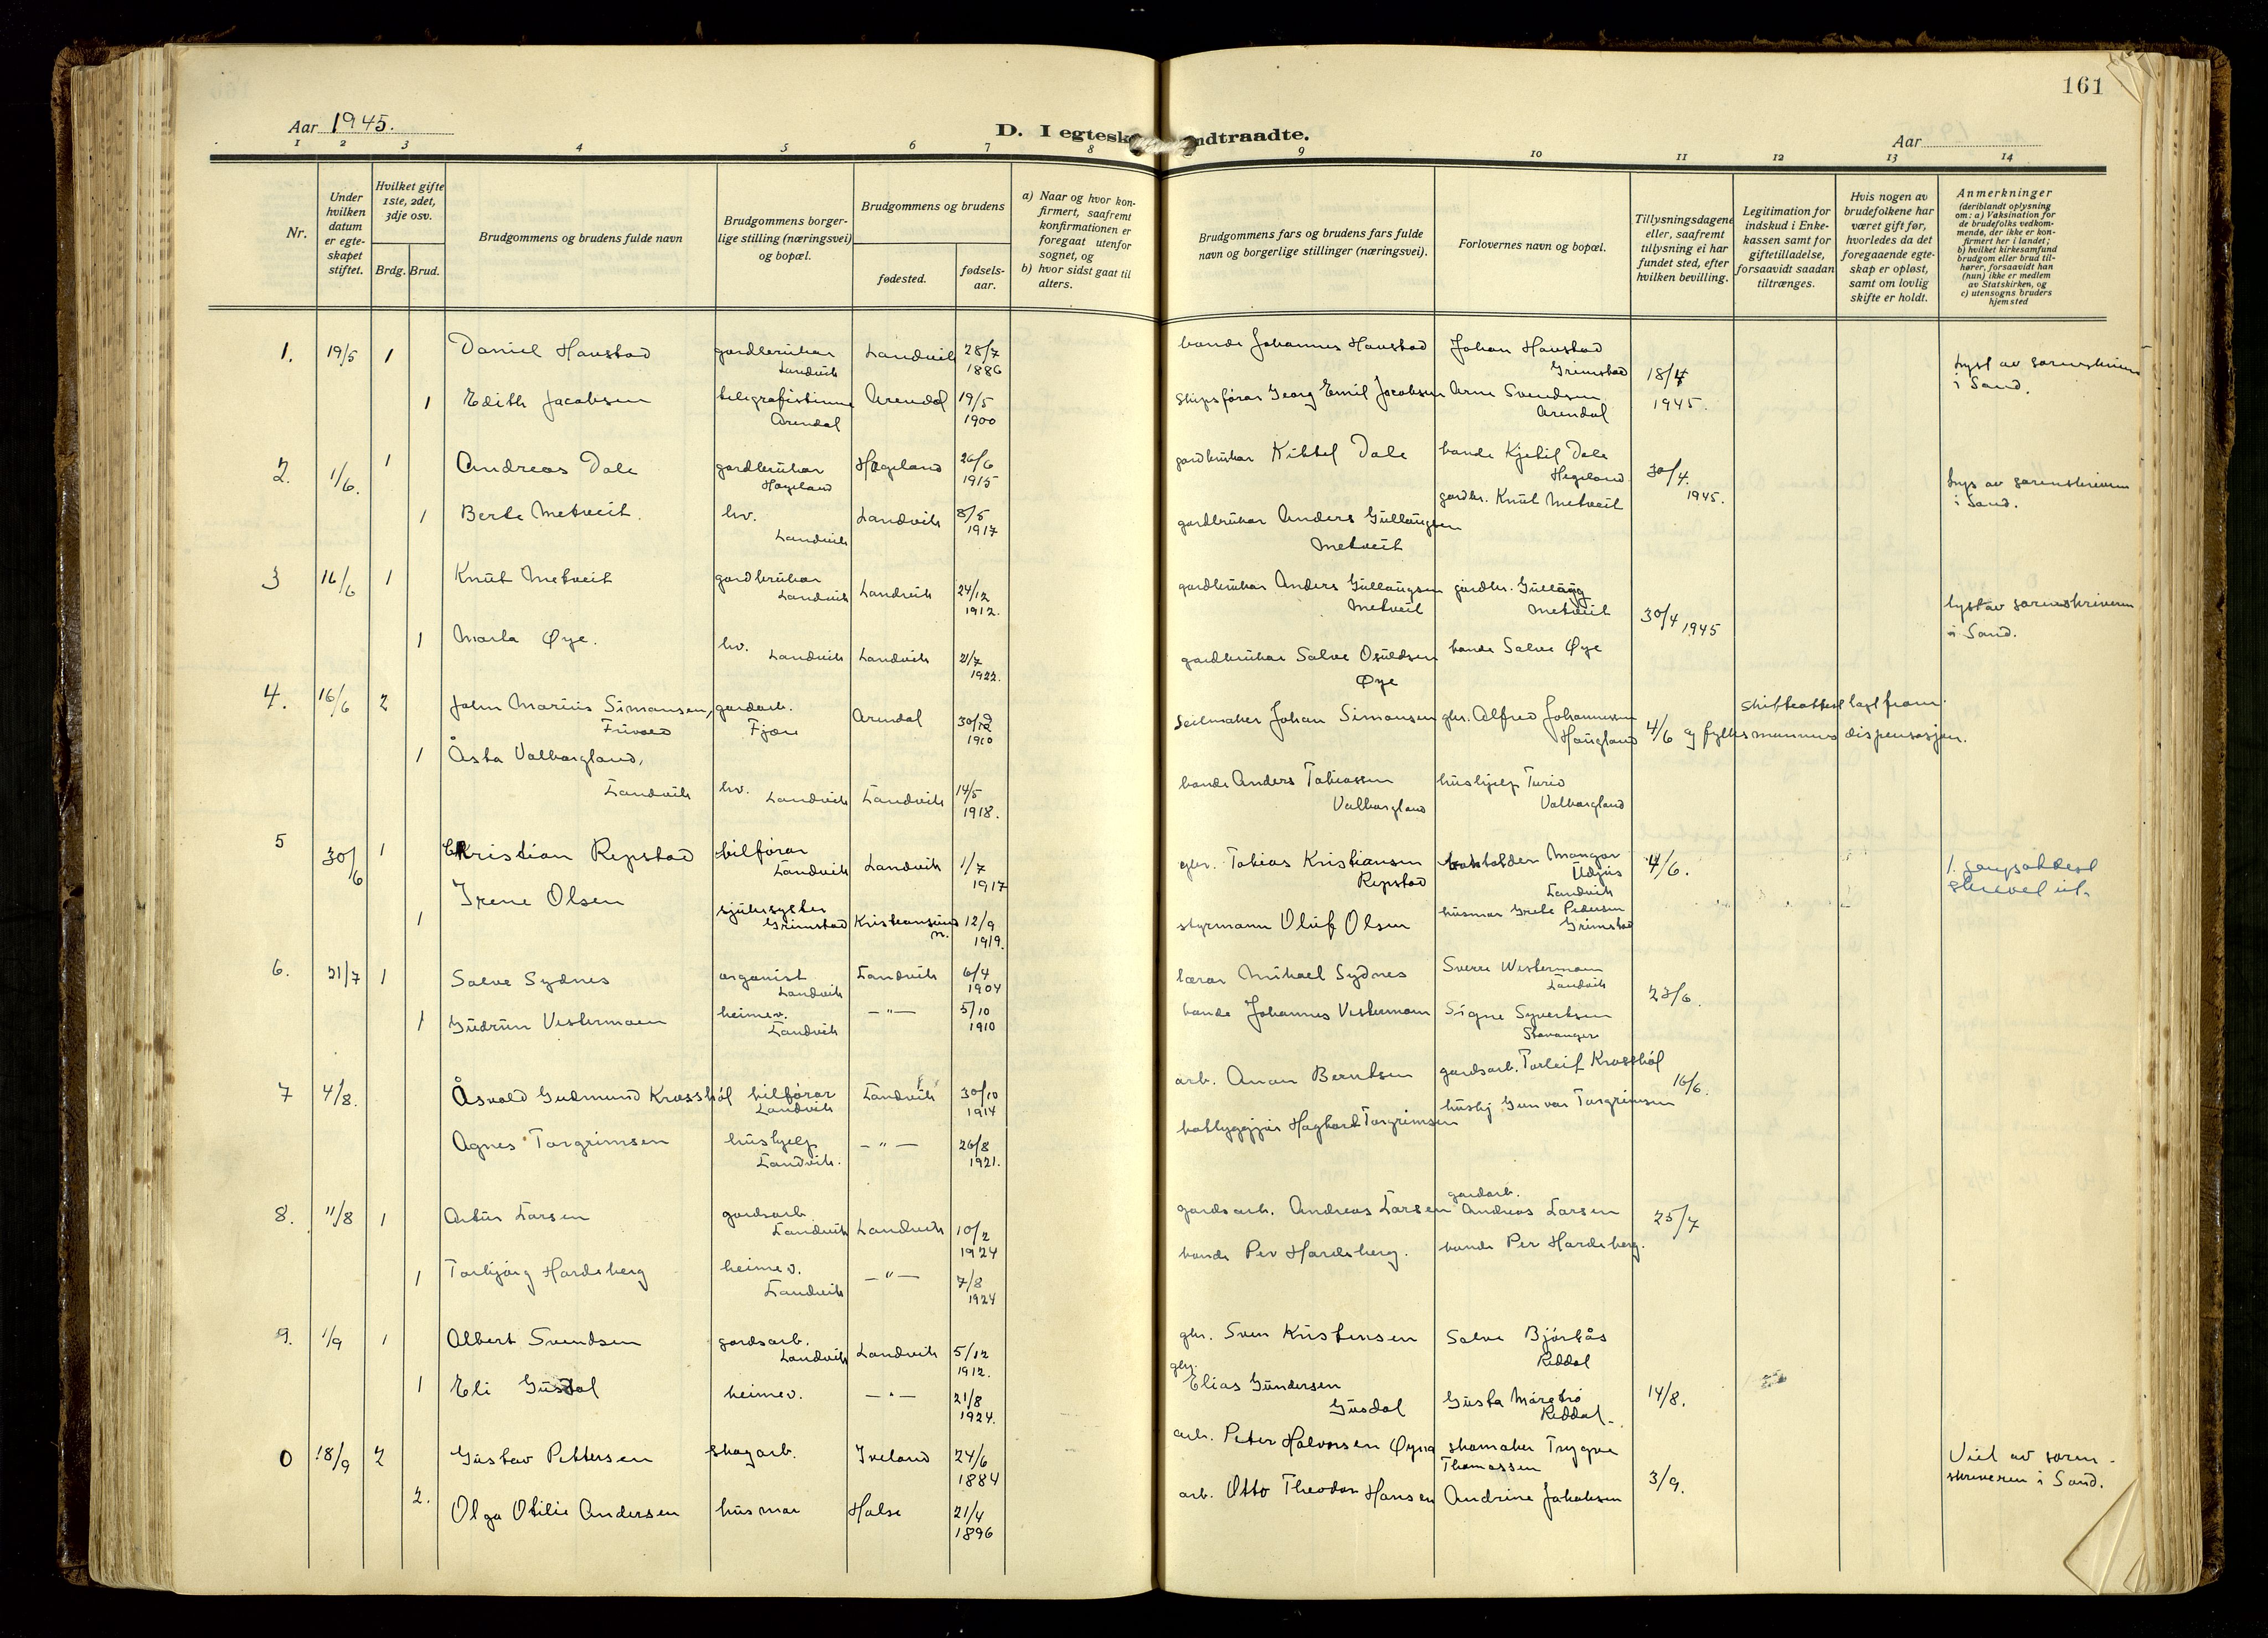 161
Aar 1945.
D. I egtesk ndtraadte.
Aar
1 2 3 4 5 6 7 8 9 10 11 12 13 14
Nr.
Under hvilken datum er egte-skapet stiftet.
Hvilket gifte 1ste, 2det, 3dje osv.
Brdg. Brud.
Brudgommens og brudens fulde navn
Brudgommens borger-lige stilling (næringsvei) og bopæl.
Brudgommens og brudens
fødested.
fødsels-aar.
a) Naar og hvor kon-firmert, saafremt konfirmationen er foregaat utenfor sognet, og
b) hvor sidst gaat til alters.
Brudgommens fars og brudens fars fulde navn og borgerlige stillinger (næringsvei).
Forlovernes navn og bopæl.
Tillysningsdagene eller, saafremt tillysning ei har fundet sted, efter hvilken bevilling.
Legitimation for indskud i Enke-kassen samt for giftetilladelse, forsaavidt saadan tiltrænges.
Hvis nogen av brudefolkene har været gift før, hvorledes da det foregaaende egte-skap er opløst, samt om lovlig skifte er holdt.
Anmerkninger
(deriblandt oplysning om: a) Vaksination for de brudefolks vedkom-mende, der ikke er kon-firmert her i landet;
b) hvilket kirkesamfund brudgom eller brud til-hører, forsaavidt han (hun) ikke er medlem av Statskirken, og
c) utensogns bruders hjemsted
1. 19/5 1 Daniel Haustad gardbrukar Landvik Landvik 28/7 1886 bonde Johannes Haustad Johan Haustad Grimstad 18/4 1945. Lyst av sorenskrivaren i Sand.
1 Edith Jacobsen telegrafistinne Arendal Arendal 19/5 1900 skipsførar Georg Emil Jacobsen Arne Svendsen Arendal
2. 1/6. 1 Andreas Dale gardbrukar Hægeland Hægeland 26/6 1915 gardbrukar Kittel Dale bonde Kjetil Dale Hegeland 30/4. 1945. Lys av sorenskrivaren i Sand.
1 Berte Metveit. hv. Landvik Landvik 8/5 1917 gardbrukar Anders Gullaugsen Metveit gardbr. Knut Metveit
3 16/6 1 Knut Metveit gardbrukar Landvik Landvik 24/12 1912. gardbrukar Anders Gullaugsen Metveit gardbr. Gullaug Metveit 30/4 1945 lyst av sorenskriveren i Sand.
1 Marta Øye. hv. Landvik Landvik 21/7 1922. gardbrukar Salve Osuldsen Øye bonde Salve Øye
4. 16/6 2 John Marius Simonsen, Frivold gardarb. Fjære Arendal 30/12 1910 seilmaker Johan Simonsen gbr. Alfred Johannessen Haugland 4/6 skifteattest lagt fram. og fylkesmannens dispensasjon.
1 Åsta Valbergland, Landvik hv. Landvik Landvik 14/5 1918. bonde Anders Tobiassen Valborgland hushjelp Turid Valborgland
5 30/6 1 Kristian Repstad bilførar Landvik Landvik 1/7 1917 gbr. Tobias Kristiansen Repstad Mangor Udjus Landvik 4/6. skrevet ut.
1 Irene Olsen sjukesyster Grimstad Kristiansund n. 12/9 1919. styrmann Oluf Olsen husmor Grete Pedersen Grimstad
6. 21/7 1 Salve Sydnes organist Landvik Landvik 6/4 1904 lærar Mikael Sydnes Sverre Westermoen Landvik 23/6.
1 Gudrun Vestermoen heimev. Landvik —"— 5/10 1910 bonde Johannes Vestermoen Signe Syvertsen Stavanger
7 4/8. Åsvald Gudmund Krosshól bilførar Landvik Landvik 30/10 1914 arb. Anon Berntsen gardsarb. Torleif Krosshól 16/6.
Agnes Torgrimsen hushjelp Landvik. —"— 26/8 1921. båtbyggjar Hagbart Torgrimsen hushj Gunvor Torgrimsen
8. 11/8 1 Artur Larsen gardsarb. Landvik Landvik 10/2 1924 gardsarb. Andreas Larsen gardarb. Andreas Larsen 25/7
1 Torbjørg Hardeberg heimev. Landvik —"— 7/8 1924 bonde Per Hardeberg. bonde Per Hardeberg.
9. 1/9 1 Albert Svendsen gardsarb. Landvik Landvik 5/12 1912. gbr. Sven Kristensen Salve Bjørkås Reddal 14/8.
1 Eli Gusdal heimev. —"— 21/8 1924. gbr. Elias Gundersen Gusdal Gusta Mørebrø Reddal.
0 18/9 2 Gustav Pettersen skogarb. Iveland 24/6 1884 arb. Peter Halvorsen skomaker Trygve Thomassen 3/9. Viet av soren-skriveren i Sand.
2. Olga Otilie Andersen husmor Halse 21/4 1896 arb. Otto Theodor Hansen Andrine Jakobsen